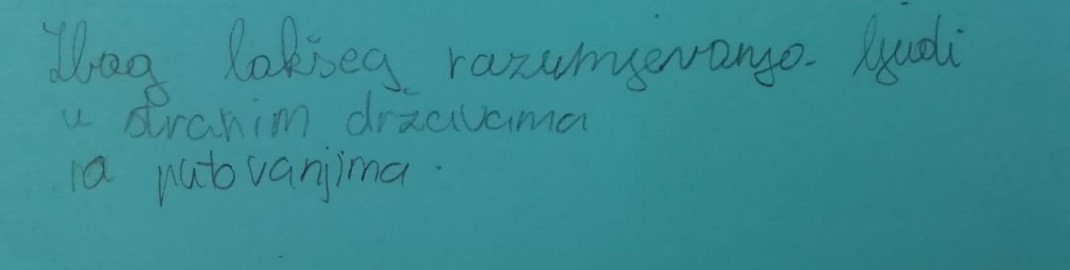 Zbog lakšeg razumjevanja ljudi
u stranim državama
na putovanjima.